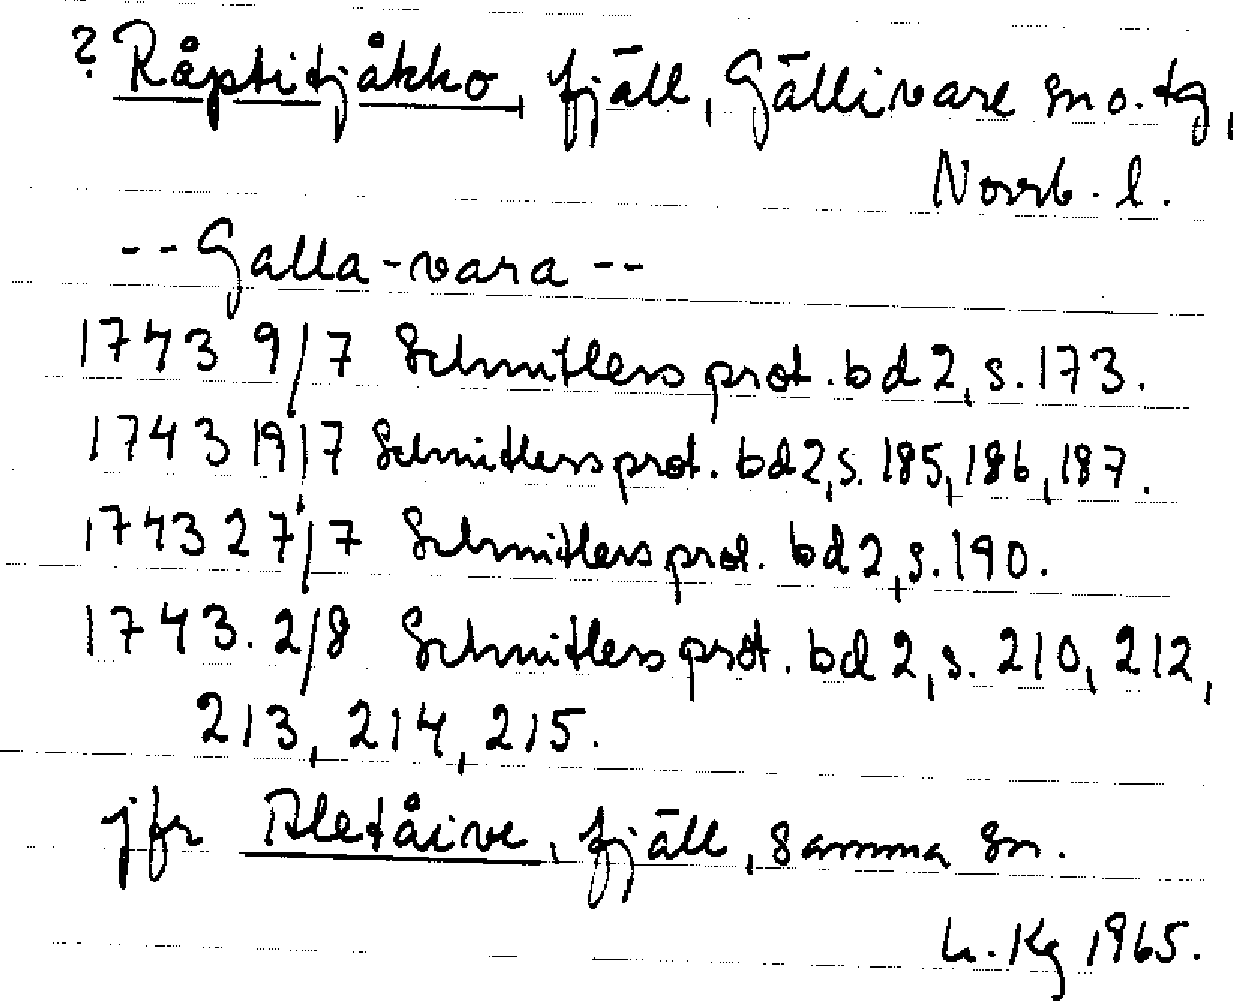 ? Råptitjåkko, fjäll, Gällivare sn o. tg,
Norrb. l.
-- Galla-vara --
1743 9/7 Schnitlers prot. bd 2, s. 173.
1743 19/7 Schnitlers prot. bd 2, s. 185, 186, 187.
1743 27/7 Schnitlers prot. bd 2, s. 190.
1743. 2/8 Schnitlers prot. bd 2, s. 210, 212,
213, 214, 215.
jfr Aletåive, fjäll, samma sn.
L. Kg 1965.